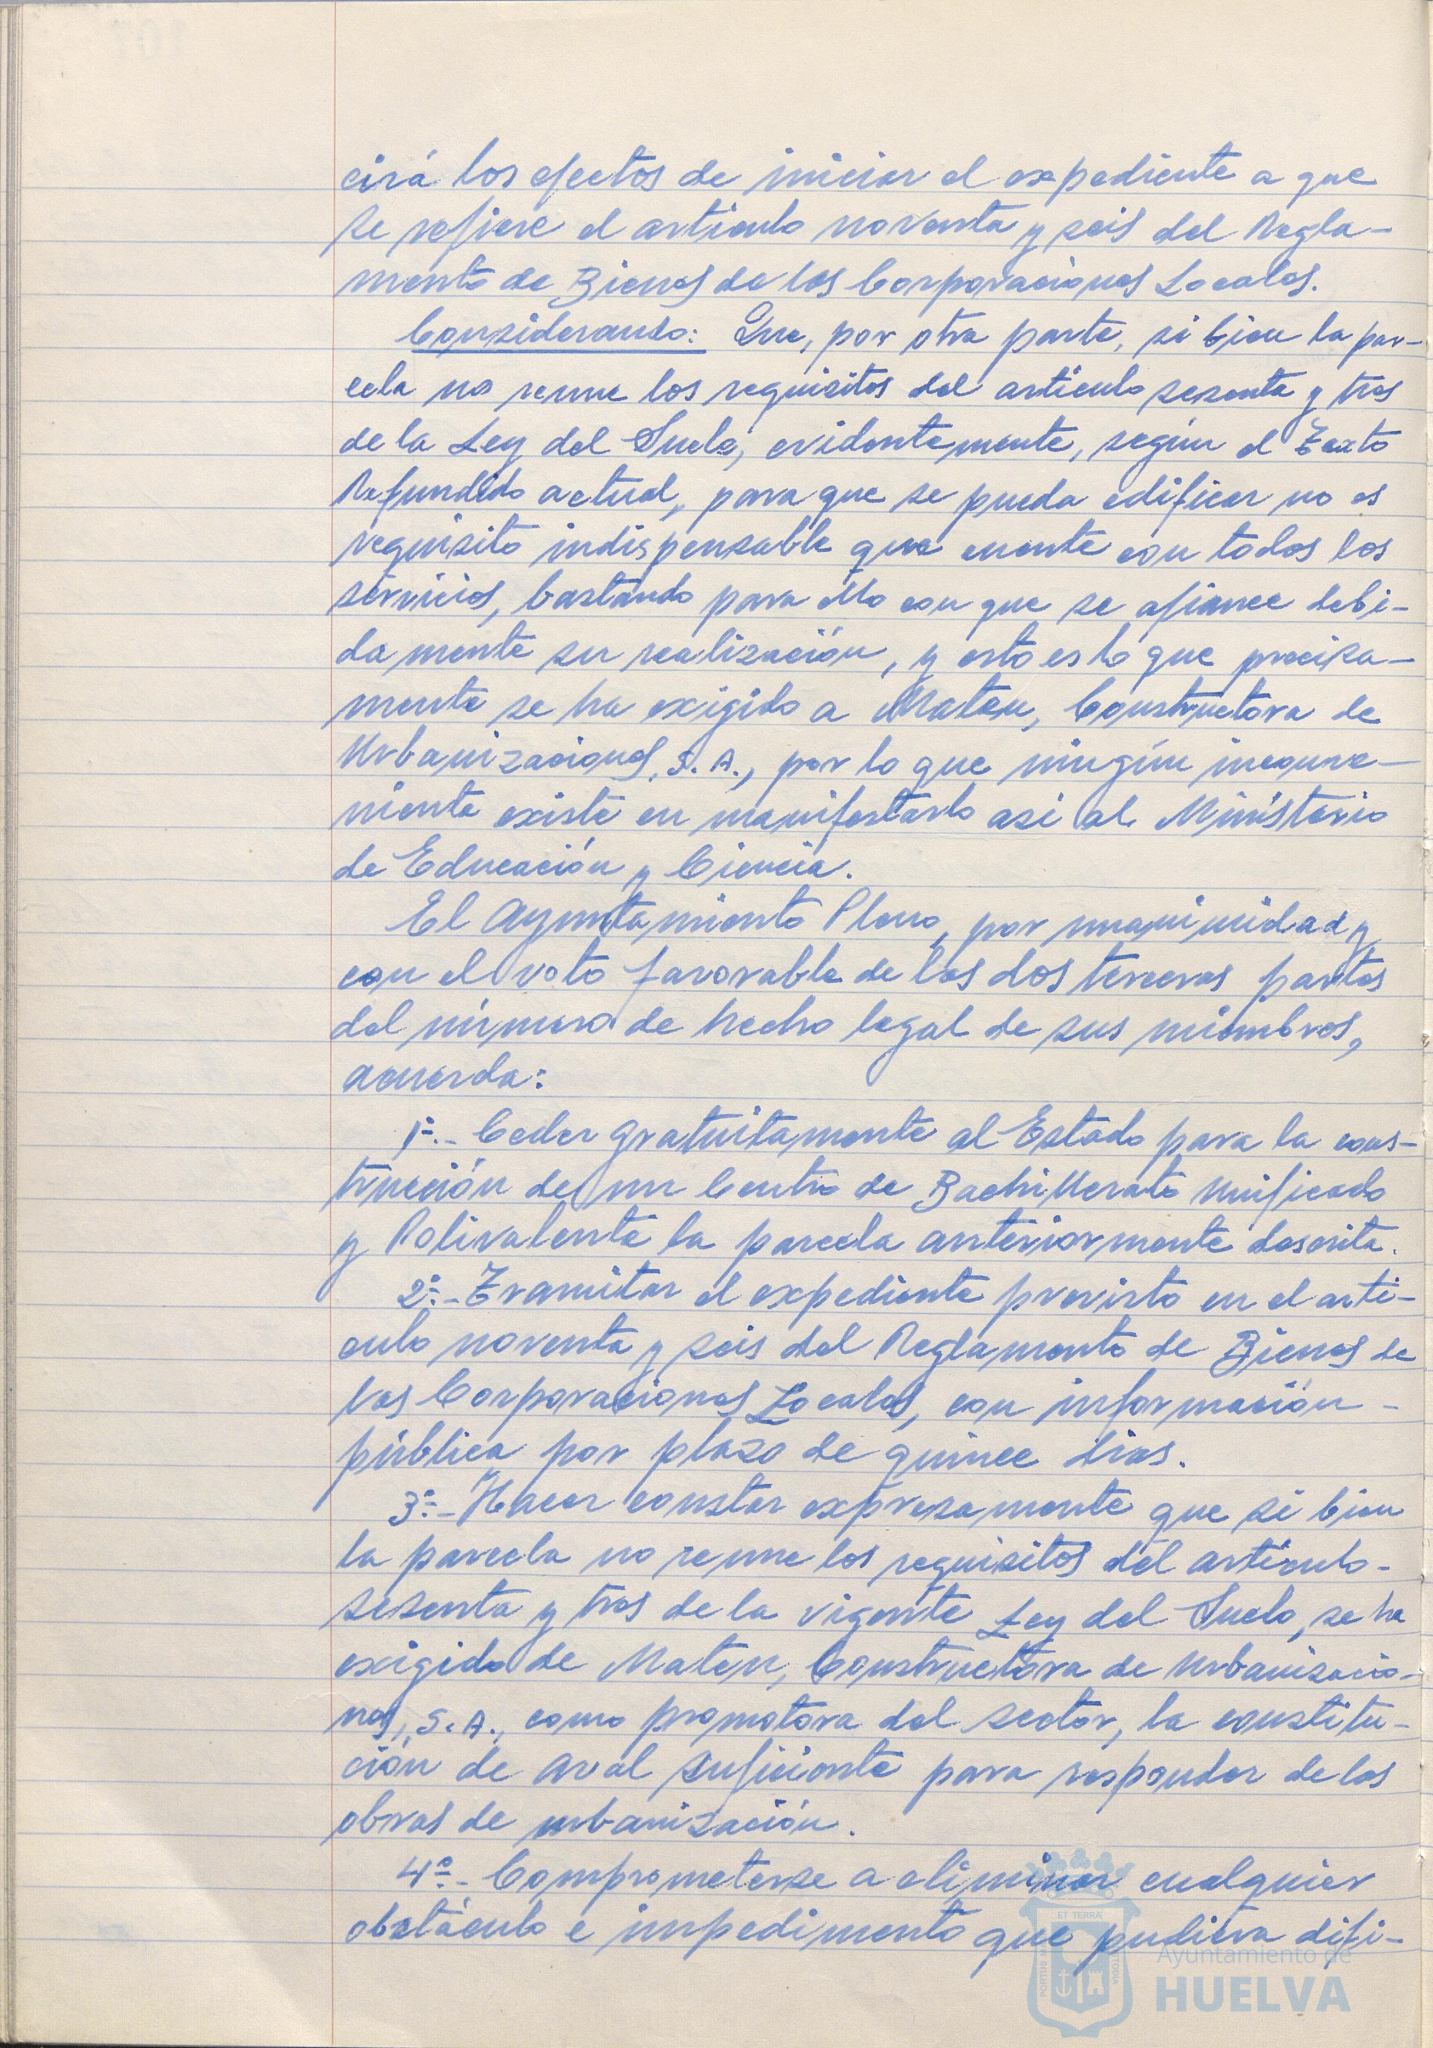 cirá los efectos de iniciar el expediente a que
se refiere el artículo noventa y seis del Regla-
mento de Bienes de las Corporaciones Locales.
Considerando: Que, por otra parte, si bien la par-
cela no reune los requisitos del artículo sesenta y tres
de la Ley del Suelo, evidentemente, según el Texto
Refundido actual, para que se pueda edificar no es
requisito indispensable que cuente con todos los
servicios, bastando para ello con que se afiance debi-
damente su realización, y esto es lo que precisa-
mente se ha exigido a Mateu, Constructora de
Urbanizaciones, S.A., por lo que ningún inconve-
niente existe en manifestarlo asi al Ministerio
de Educación y Ciencia.
El Ayuntamiento Pleno, por unanimidad y
con el voto favorable de las dos terceras partes
del número de hecho legal de sus miembros,
acuerda:
1º.- Ceder gratuitamente al Estado para la cons-
trucción de un Centro de Bachillerato Unificado
y Polivalente la parcela anteriormente descrita.
2º.- Tramitar el expediente previsto en el artí-
culo noventa y seis del Reglamento de Bienes de
las Corporaciones Locales, con información -
pública por plazo de quince días.
3º.- Hacer constar expresamente que si bien
la parcela no reune los requisitos del artículo -
sesenta y tres de la vigente Ley del Suelo, se ha
exigido de Mateu, Constructora de Urbanizacio-
nes, S.A., como promotora del sector, la constitu-
ción de aval suficiente para responder de las
obras de urbanización.
4º.- Comprometerse a eliminar cualquier
obstáculo e impedimento que pudiera difi-
ET TERRA
Ayuntamiento de
HUELVA